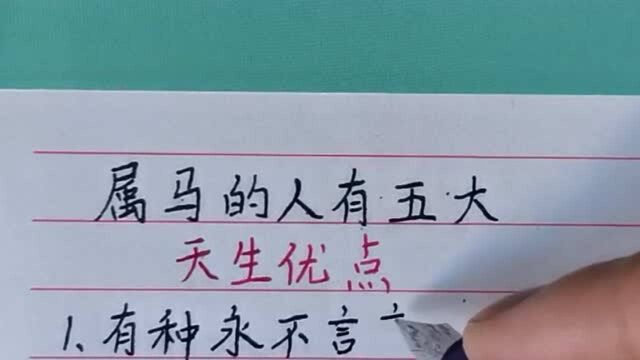 属马的人有五大
天生优点
1、有种永不言